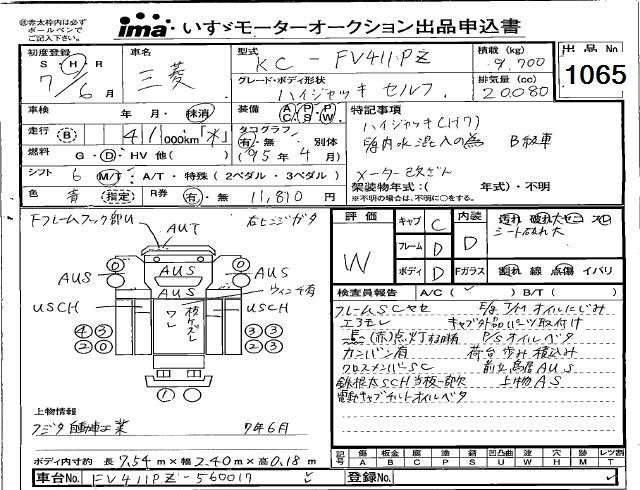 ㊟赤太枠内は必ず
ボールペンで
ご記入下さい。
ima いすゞモーターオークション出品申込書
初度登録 車名 型式 積載 (kg) 出品 No
S H R 三菱 KC - FV411PZ 9,700 1065
7/6月 グレード・ボディ形状 排気量 (cc)
ハイジャッキ セルフ 20080
車検 年 月・抹消 装備 A/C P/S P/W 特記事項
走行 B 41 000km「水」 タコグラフ ハイジャッキ(H7)
有・無 別体 B級車
燃料 G・D・HV 他( ) (95年4月)
シフト 6 M/T・A/T・特殊(2ペダル・3ペダル) メーター改ざん
架装物年式:( 年式)・不明
色 青 指定 R券 有・無 11,810 円 ※不明の場合は、不明に○をする。
Fフレームフック部U 右ヒンジガタ
評価 キャブ C 内装
W フレーム D D シート破れ大
ボディ D Fガラス 割れ 線 点傷 イバリ
検査員報告 A/C( ) B/T( )
AUT
0 0
AUS AUS AUS
AUS ウインチ有
USCH USCH
ワレ 板ケズレ
4 3 3 3
2 0 2 2
1
フレームSCサビ E/g T/M オイルにじみ
エアモレ キャブ外品パーツ取付け
(赤)点灯 P/Sオイルベタ
カンバン有 荷台歩み板込み
クロスメンバSC 前立鳥居AUS
上物AS
電動キャブチルトオイルベタ
上物情報
フジタ自動車工業 7年6月
ボディ内寸約 長 7.54 m×幅 2.40 m×高 0.18 m
記号 傷 板金 腐 塗 錆 凹凸曲 欠 穴 跡 レツ割
A B C P S U W H M T
車台No. FV411PZ-560017 登録No.